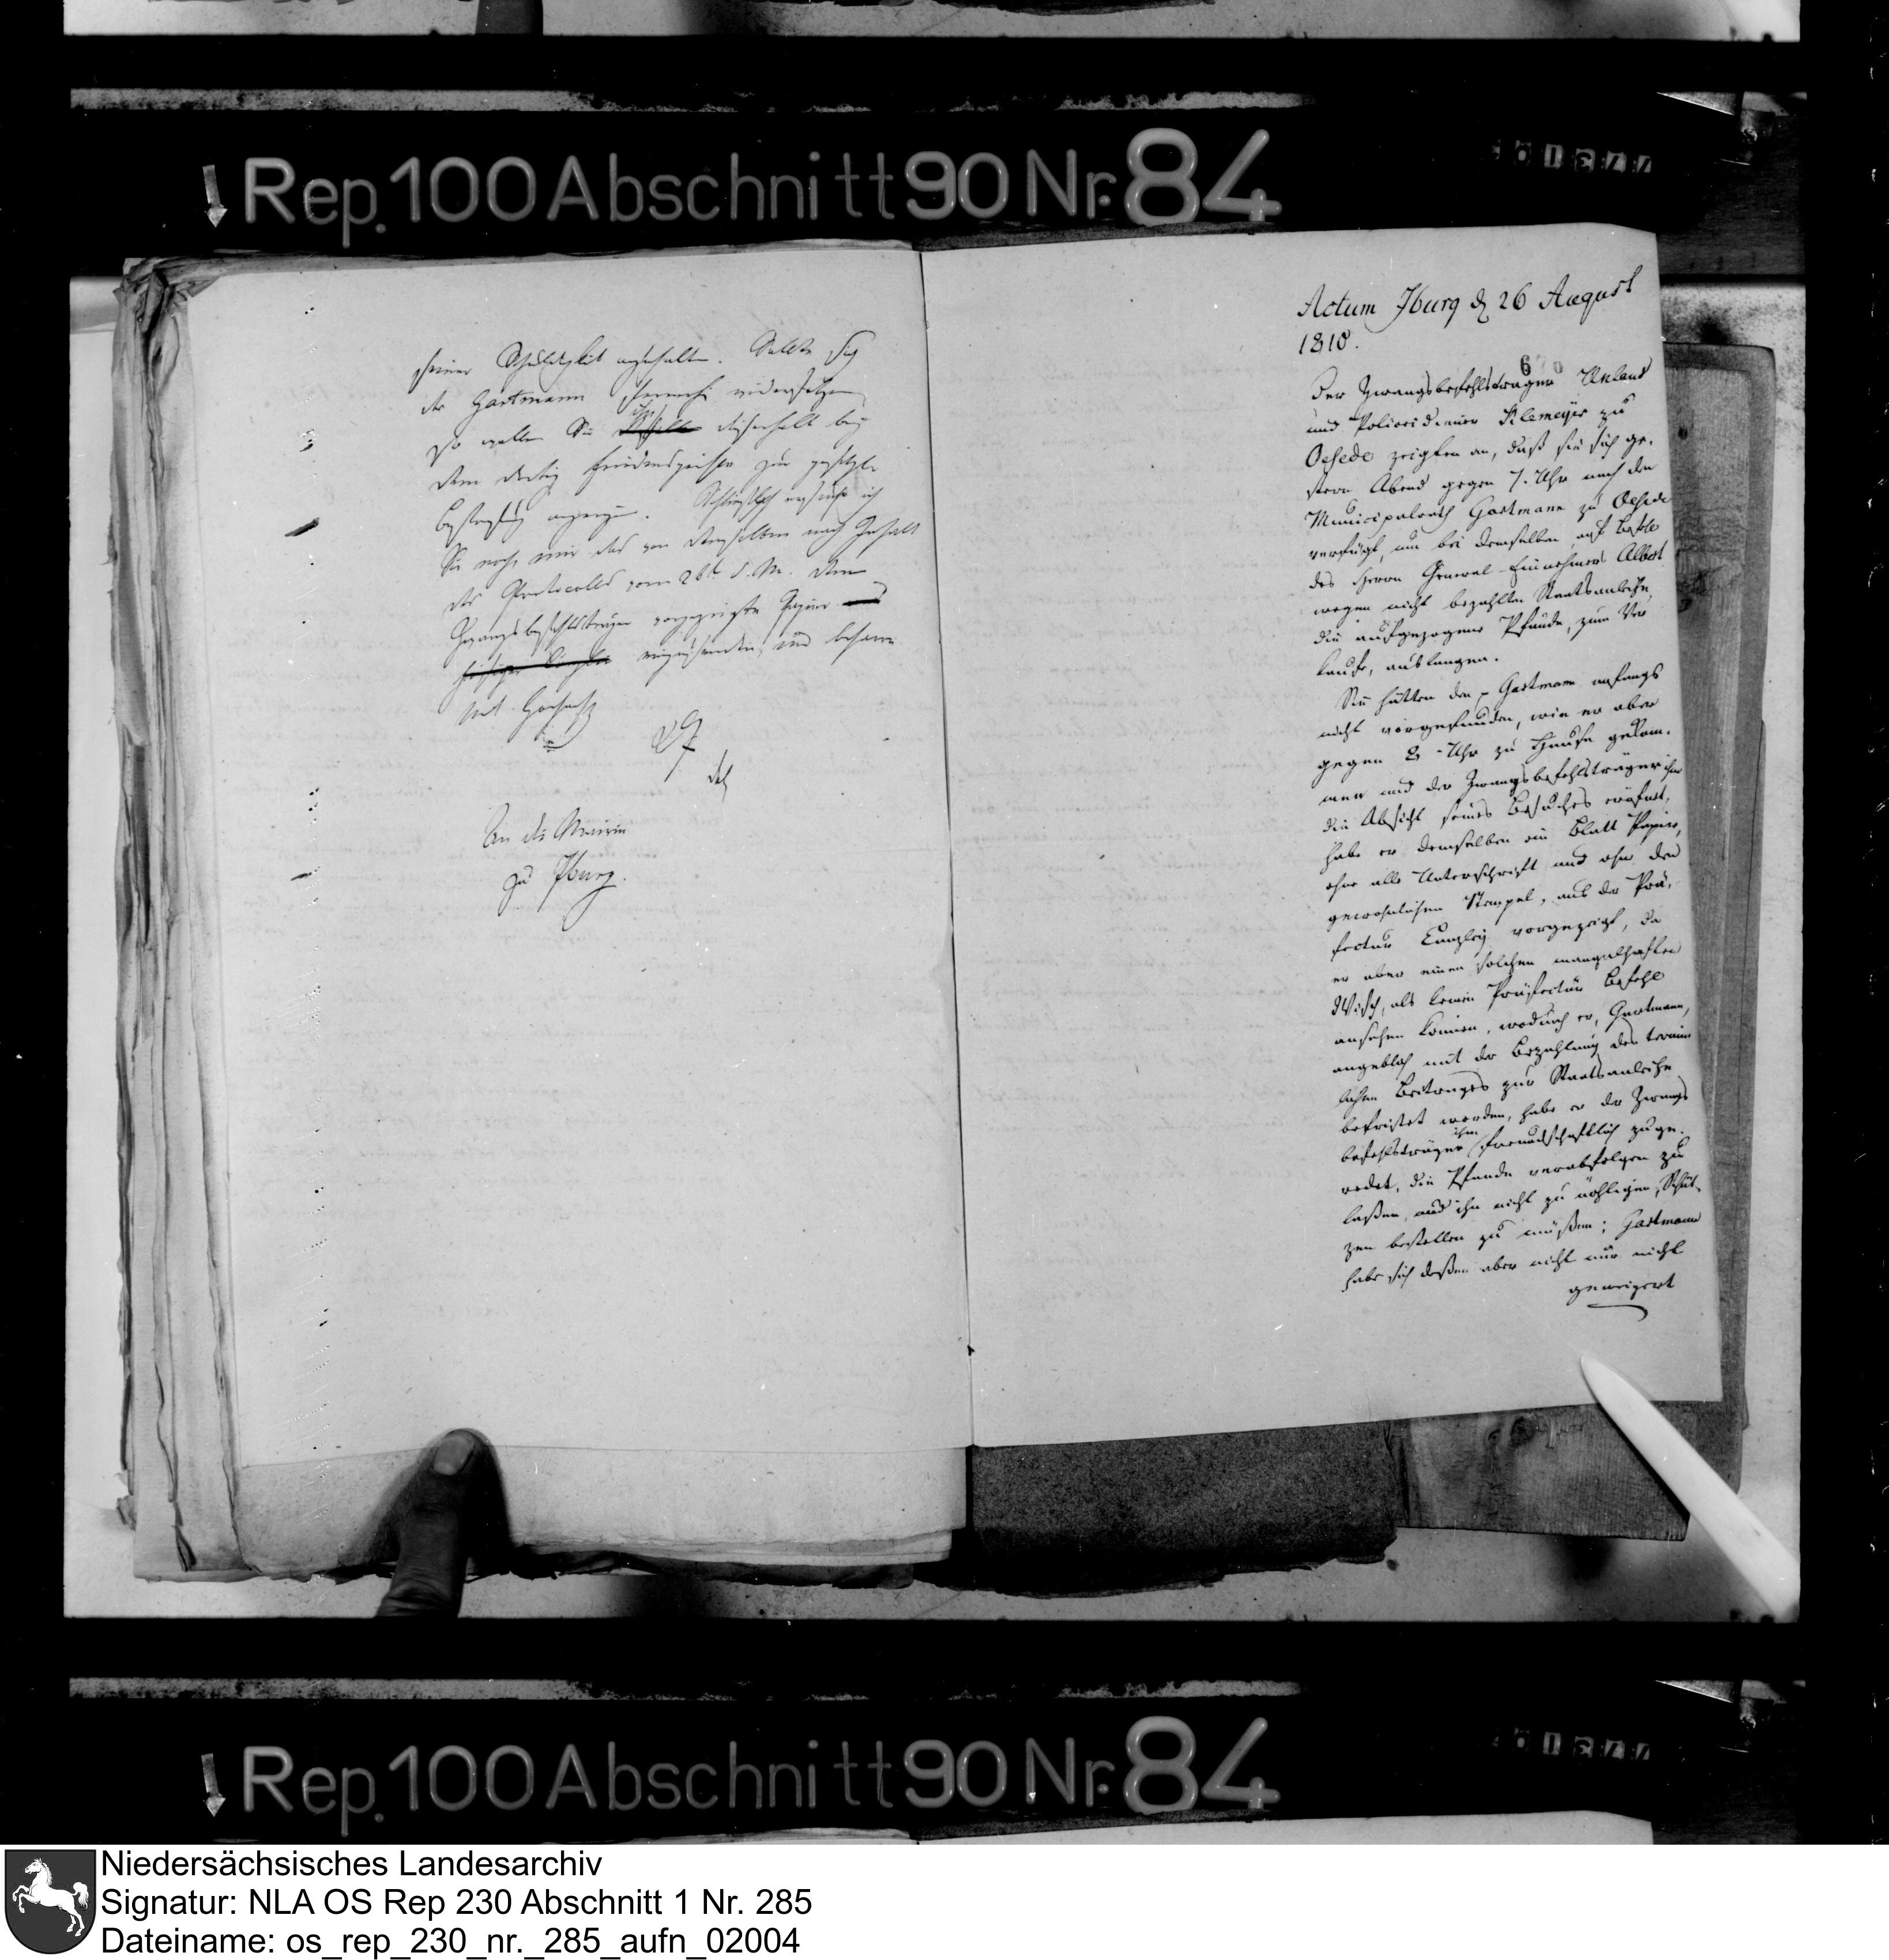 Rep. 100 Abschnitt 90 Nr. 84
seiner Schuldigkeit anzuhalten. Sollte sich
der Gartmann ferner widersetzen,
so wollen Sie ihn dieserhalb bey
dem dortig Friedensgerichte zur gesetzl.
Bestrafung anzeigen. Schließlich ersuche ich
Sie noch mir das von demselben nach Inhalt
des Protocolls vom 26t d. M. dem
Zwangsbefehlsträger vorgezeigte Papier
einzusenden, und beharre
mit Hochach
An die Mairie
zu Iburg.
Actum Iburg d 26 August
1810.
Der Zwangsbefehlsträger Unland
und Policeidiener Klemeyer zu
Oesede zeigten an, daß sie sich ge-
stern Abend gegen 7. Uhr nach den
Municipalrath Gartmann zu Oesede
verfügt, um bei demselben auf Befehl
des Herrn General-Einnehmers Albert
wegen nicht bezahlter Staatsanleihe,
die aufgezogene Pfände, zum Ver
kaufe, auslangen.
Sie hätten den p Gartmann anfangs
nicht vorgefunden, wie er aber
gegen 8 Uhr zu Hause gekom-
men und der Zwangsbefehlsträger ihm
die Absicht seines Besuches eröfnet,
habe er demselben ein Blatt Papier,
ohne alle Unterschrift und ohne den
gewöhnlichen Stempel, aus der Prä-
fectur Canzley vorgezeigt, da
er aber einen solchen mangelhaften
Wisch, als keinen Präfectur Befehl
ansehen können, wodurch er, Gartmann,
angeblich mit der Bezahlung des termin
lichen Beitrages zur Staatsanleihe
befristet worden, habe er der Zwangs
befehlsträger ihm freundschaftlich zuge-
redet, die Pfande verabfolgen zu
laßen, und ihn nicht zu nöthigen, Schüt-
zen bestellen zu müßen; Gartmann
habe sich deßen aber nicht nur nicht
geweigert
Rep. 100 Abschnitt 90 Nr. 84
Niedersächsisches Landesarchiv
Signatur: NLA OS Rep 230 Abschnitt 1 Nr. 285
Dateiname: os_rep_230_nr._285_aufn_02004